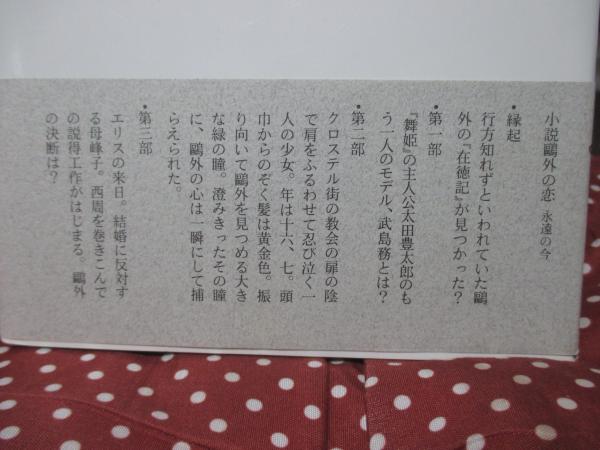 小説鷗外の恋 永遠の今
・縁起
行方知れずといわれていた鷗
外の『在徳記』が見つかった?
・第一部
『舞姫』の主人公太田豊太郎のも
う一人のモデル、武島務とは?
・第二部
クロステル街の教会の扉の陰
で肩をふるわせて忍び泣く一
人の少女。年は十六、七。頭
巾からのぞく髪は黄金色。振
り向いて鷗外を見つめる大き
な緑の瞳。澄みきったその瞳
に、鷗外の心は一瞬にして捕
らえられた。
・第三部
エリスの来日。結婚に反対す
る母峰子。西周を巻きこんで
の説得工作がはじまる。鷗外
の決断は?